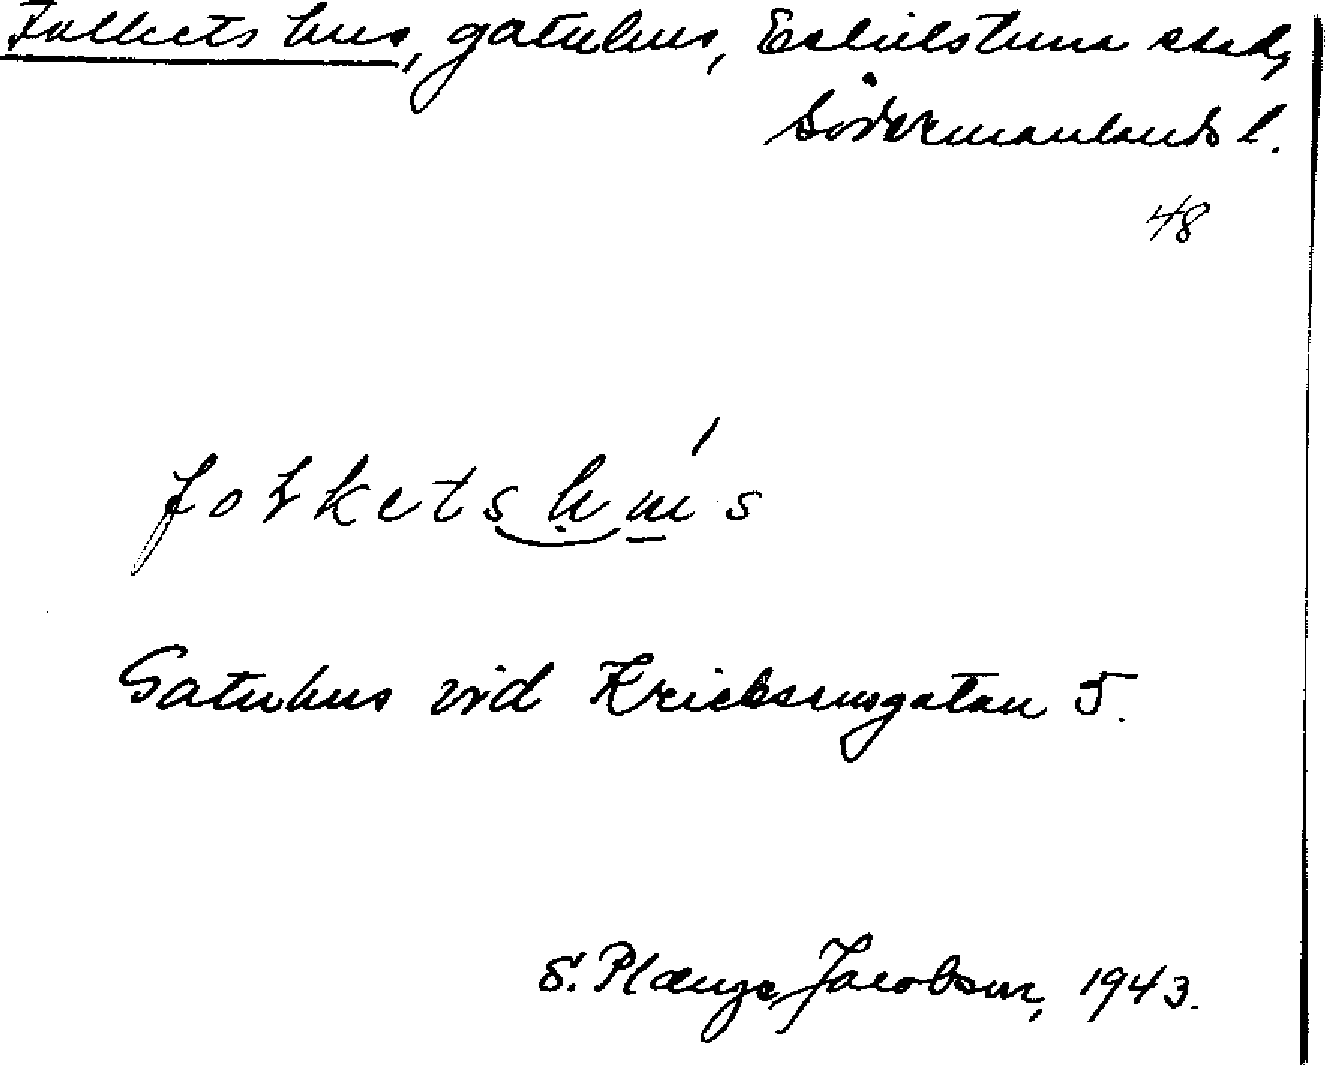 Folkets hus, gatuhus, Eskilstuna stad,
Södermanlands l.
48
folketshu's
Gatuhus vid Kriebsensgatan 5.
S. Plænge Jacobson, 1943.